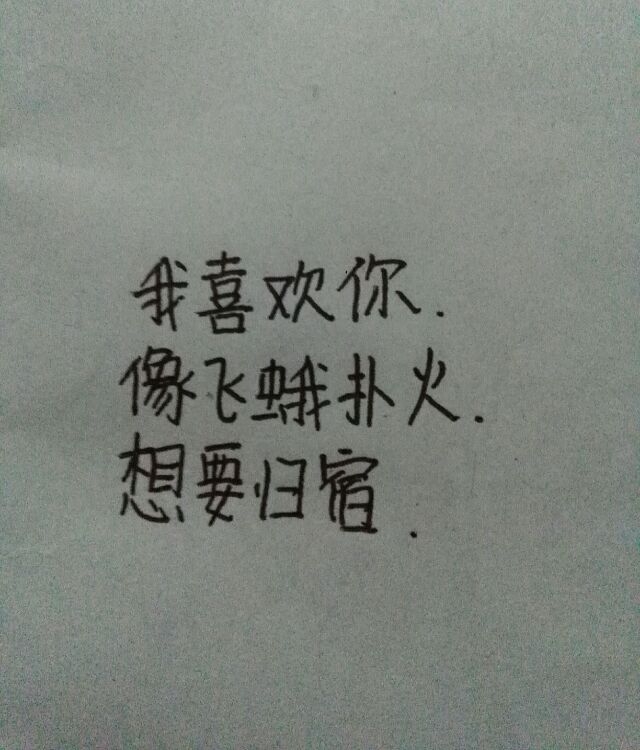 我喜欢你.
像飞蛾扑火.
想要归宿.